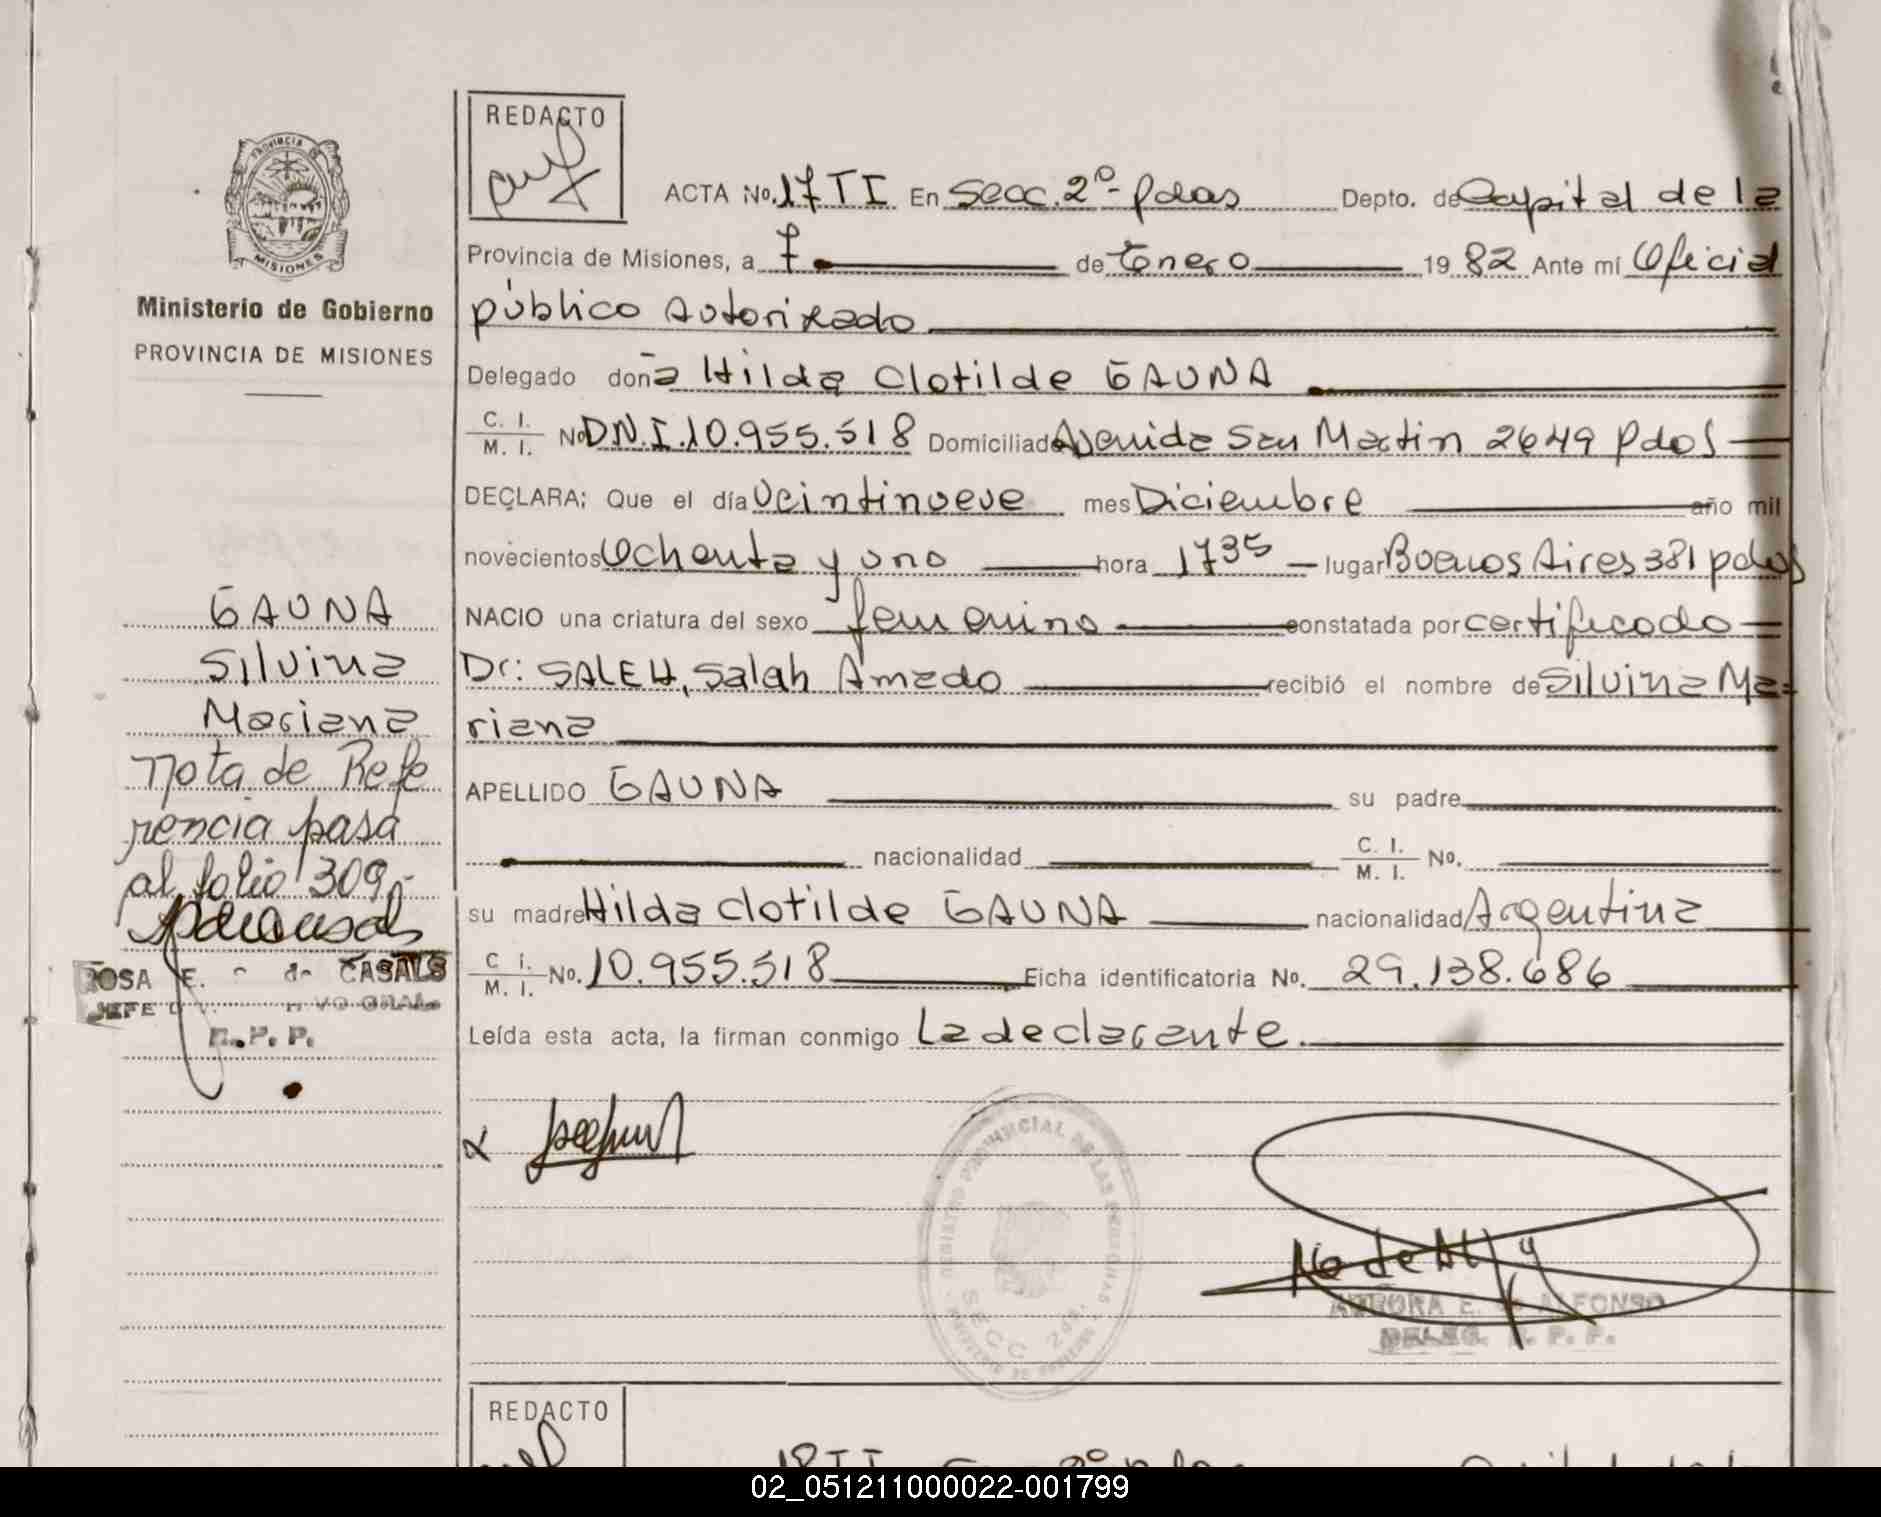 PROVINCIA DE
MISIONES
Ministerio de Gobierno
PROVINCIA DE MISIONES
GAUNA
Silvina
Mariana
Nota de Refe
rencia pasa
al folio 309.-
ROSA E. de CASALS
JEFE
R.P.P.
REDACTO
ACTA No. 17 TI En Secc. 2º- Pdas Depto. de Capital de la
Provincia de Misiones, a 7 de Enero 1982 Ante mí Oficial
público Autorizado
Delegado doña Hilda Clotilde GAUNA
C. I. / M. I. No DN.I. 10.955.518 Domiciliado Avenida San Martin 2649 Pdas
DECLARA: Que el día Veintinueve mes Diciembre año mil
novecientos Ochenta y uno hora 1735 lugar Buenos Aires 381 pdas
NACIO una criatura del sexo femenino constatada por certificado
Dr: SALEH, Salah Amado recibió el nombre de Silvina Ma=
riana
APELLIDO GAUNA su padre
nacionalidad C. I. / M. I. No.
su madre Hilda Clotilde GAUNA nacionalidad Argentina
C. I. / M. I. No. 10.955.518 Ficha identificatoria No. 29.138.686
Leída esta acta, la firman conmigo La declarante.
REGISTRO PROVINCIAL DE LAS PERSONAS
SECC 2da.
AURORA E. de ALFONSO
DELEG. R. P. P.
REDACTO
18 TI
02_051211000022-001799